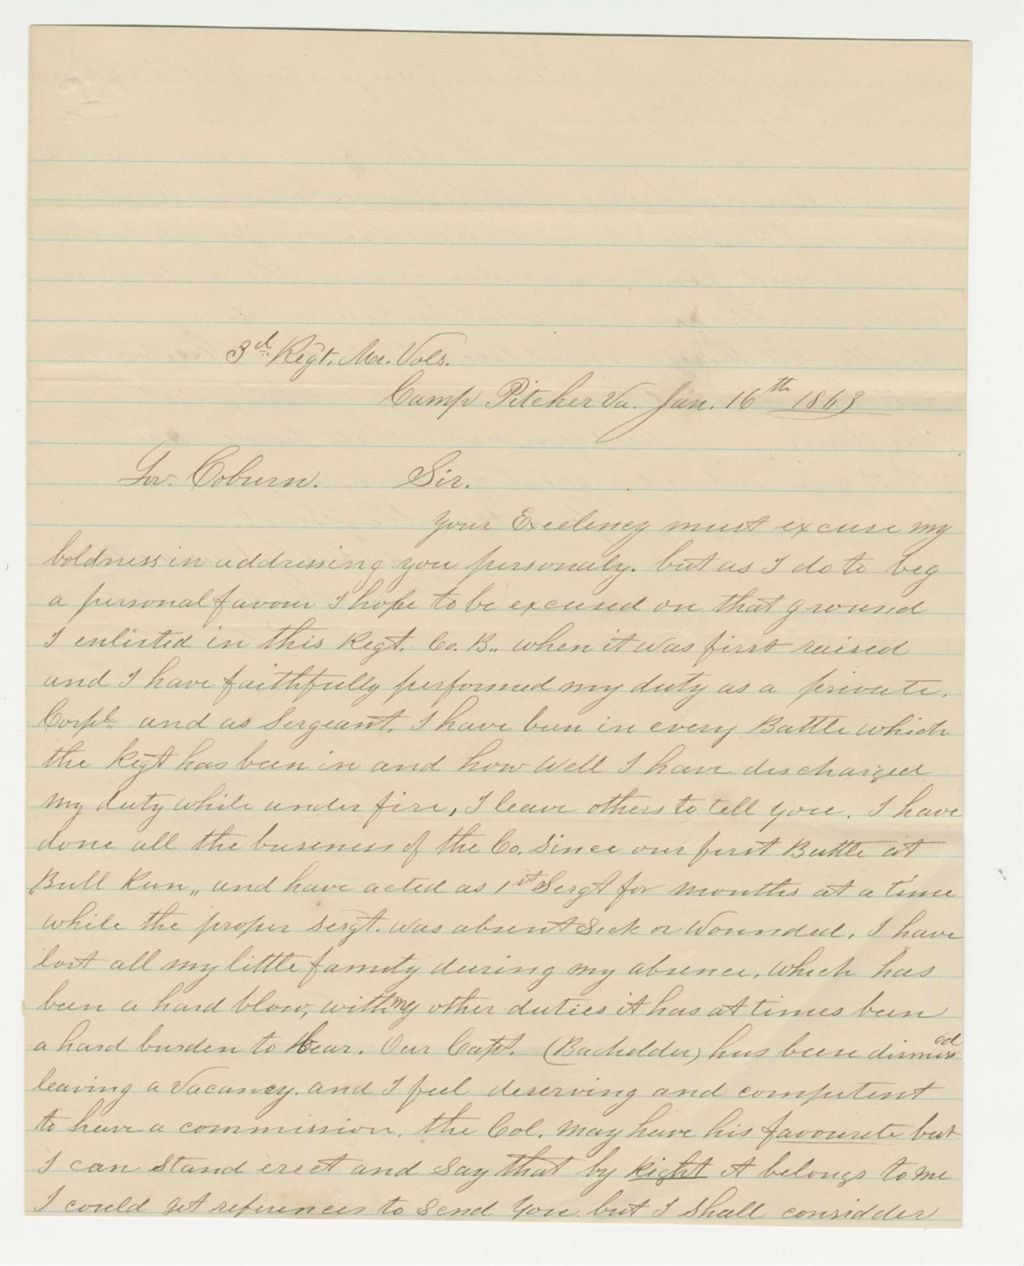 3d. Regt. Me. Vols.
Camp Pitcher Va. Jan. 16th 1863
Gov. Coburn. Sir.
Your Excelency must excuse my
boldness in addressing you personaly. but as I do to beg
a personal favour I hope to be excused on that ground
I enlisted in this Regt. Co. B,, when it was first raised
and I have faithfully performed my duty as a private.
Corpl. and as Sergeant. I have been in every Battle which
the Regt has been in and how well I have discharged
my duty while under fire, I leave others to tell you. I have
done all the buseness of the Co. Since our first Battle at
Bull Run,, and have acted as 1st Sergt for months at a time
while the proper Sergt. was absent Sick or Wounded, I have
lost all my little family during my absence, which has
been a hard blow, with my other duties it has at times been
a hard burden to bear. Our Capt. (Bachelder) has been dismissed
leaving a Vacancy. and I feel deserving and competent
to have a commission. the Col. may have his favourete but
I can Stand erect and Say that by Right it belongs to me
I could get references to Send You. but I Shall considder